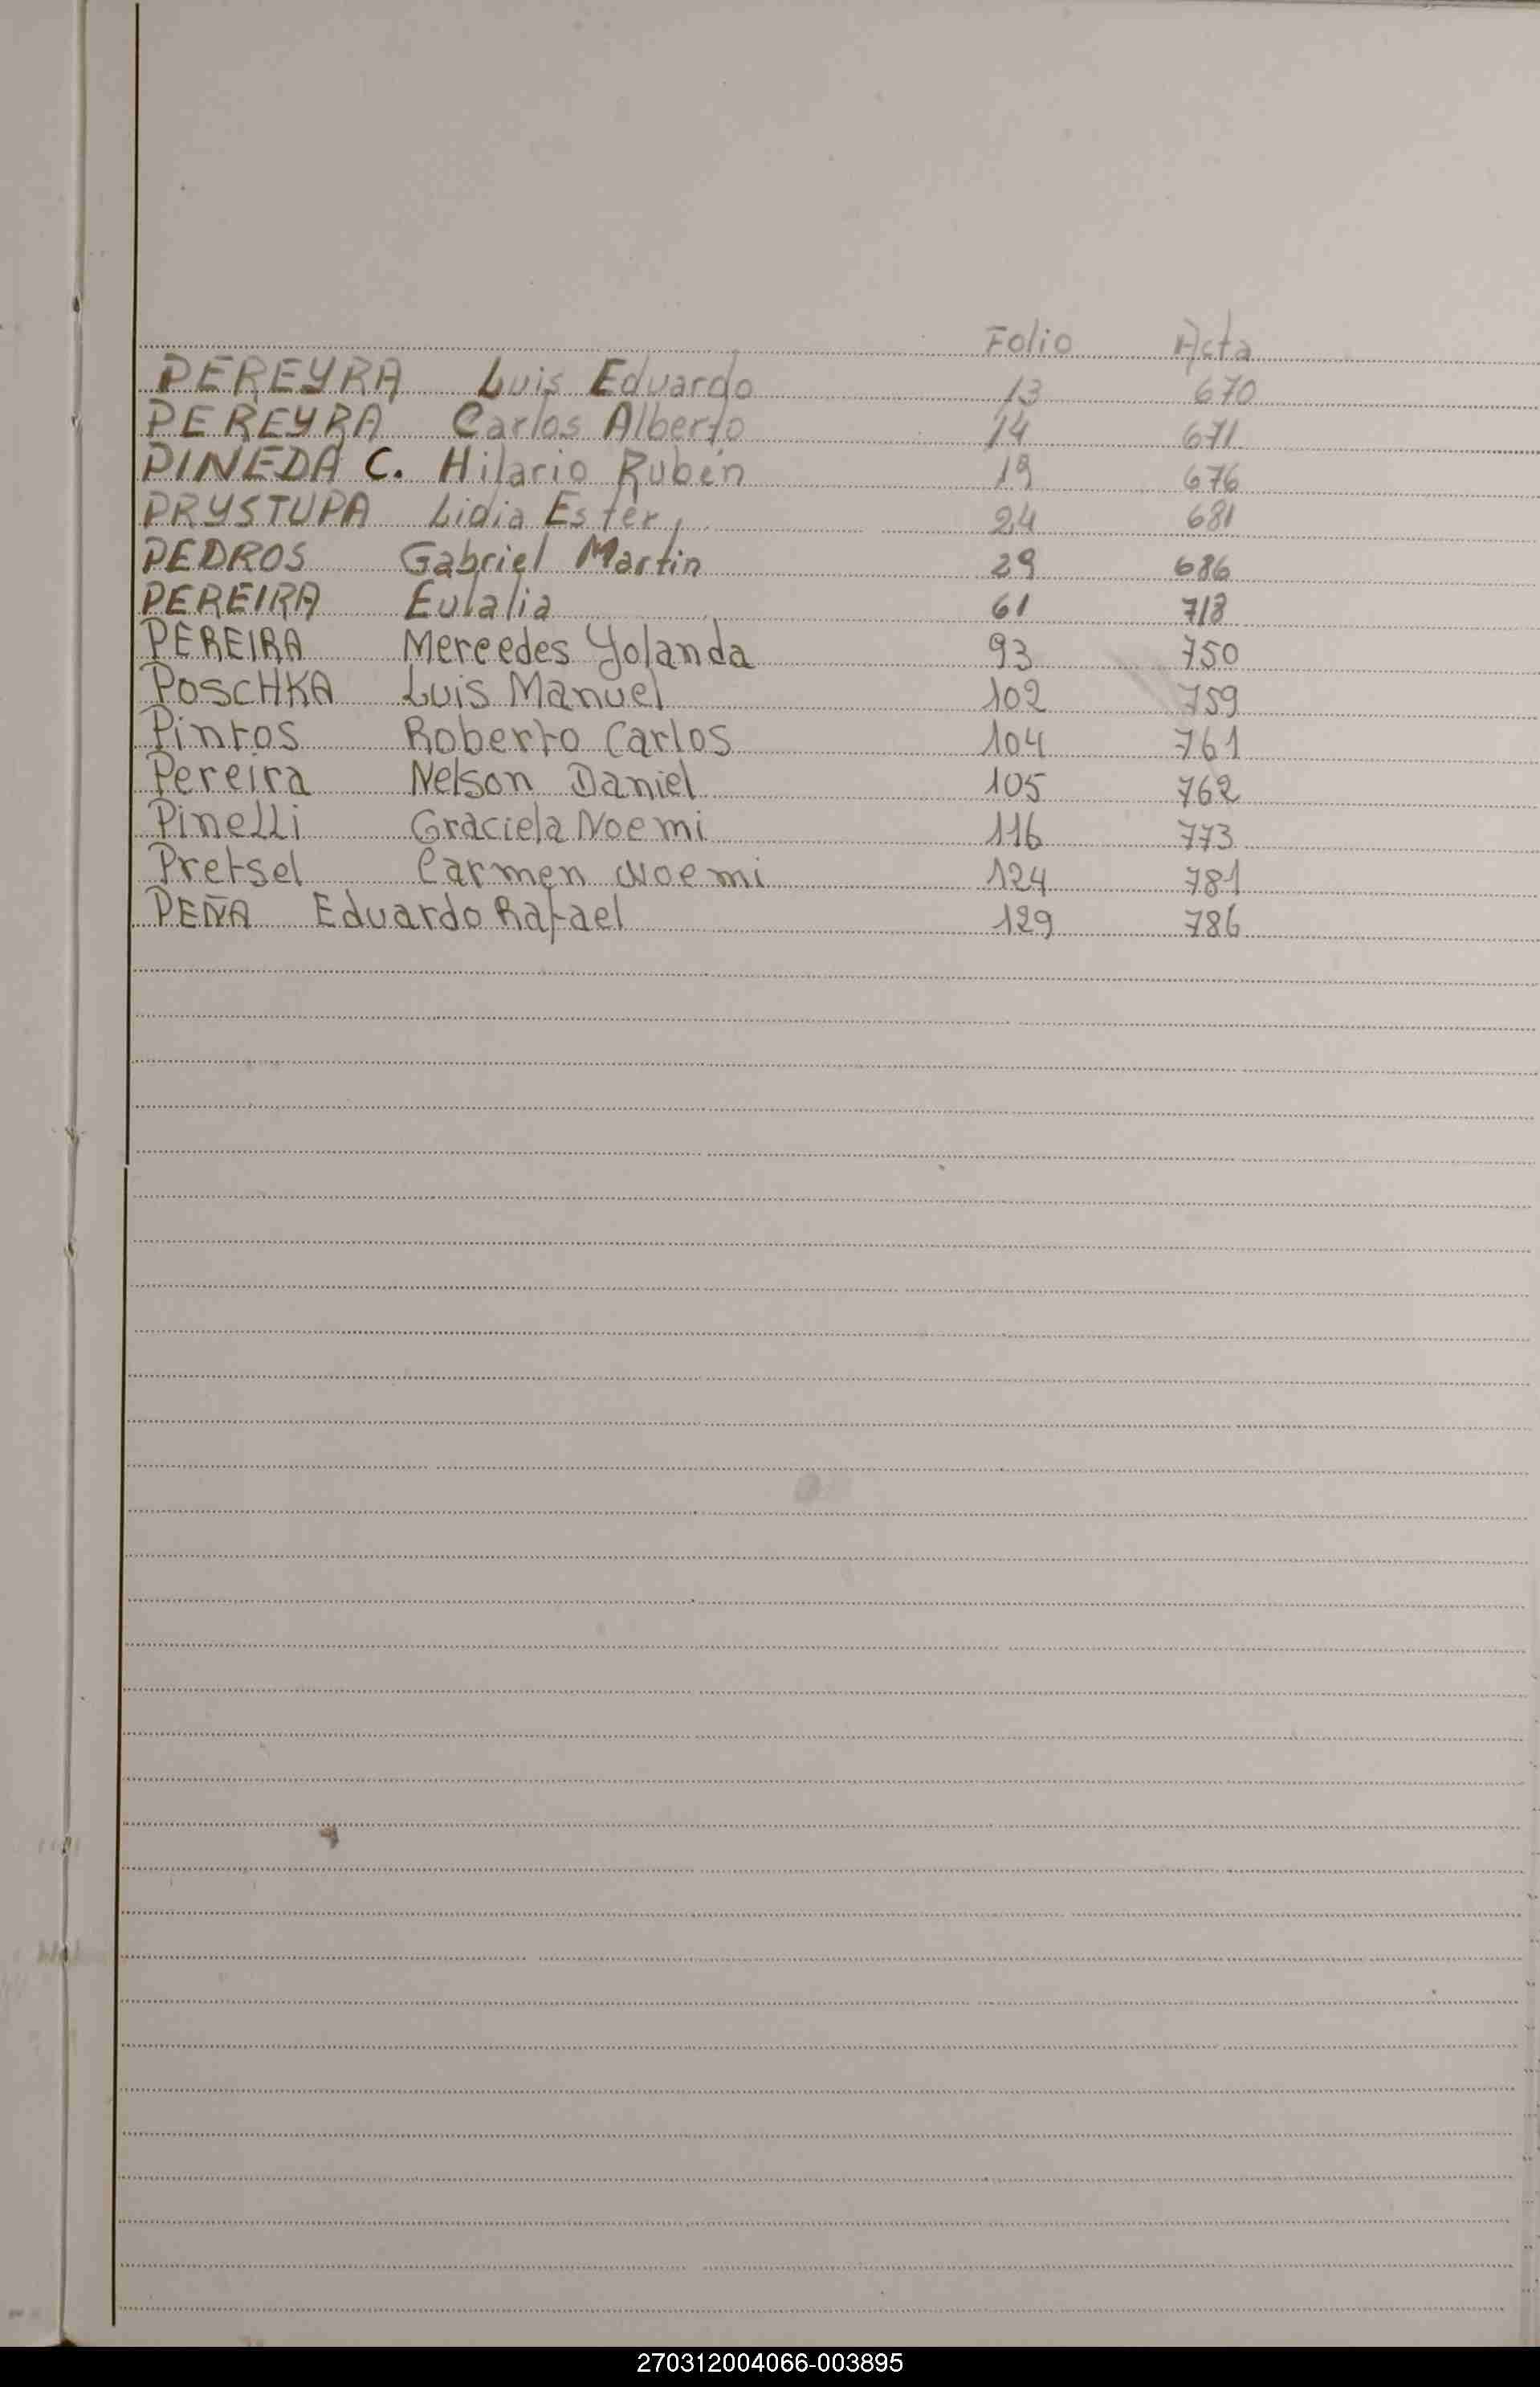 Folio Acta
PEREYRA Luis Eduardo 13 670
PEREYRA Carlos Alberto 14 671
PINEDA C. Hilario Rubén 19 676
PRYSTUPA Lidia Ester 24 681
PEDROS Gabriel Martin 29 686
PEREIRA Eulalia 61 718
PEREIRA Mercedes Yolanda 93 750
POSCHKA Luis Manuel 102 759
Pintos Roberto Carlos 104 761
Pereira Nelson Daniel 105 762
Pinelli Graciela Noemi 116 773
Pretsel Carmen Noemi 124 781
PEÑA Eduardo Rafael 129 786
270312004066-003895